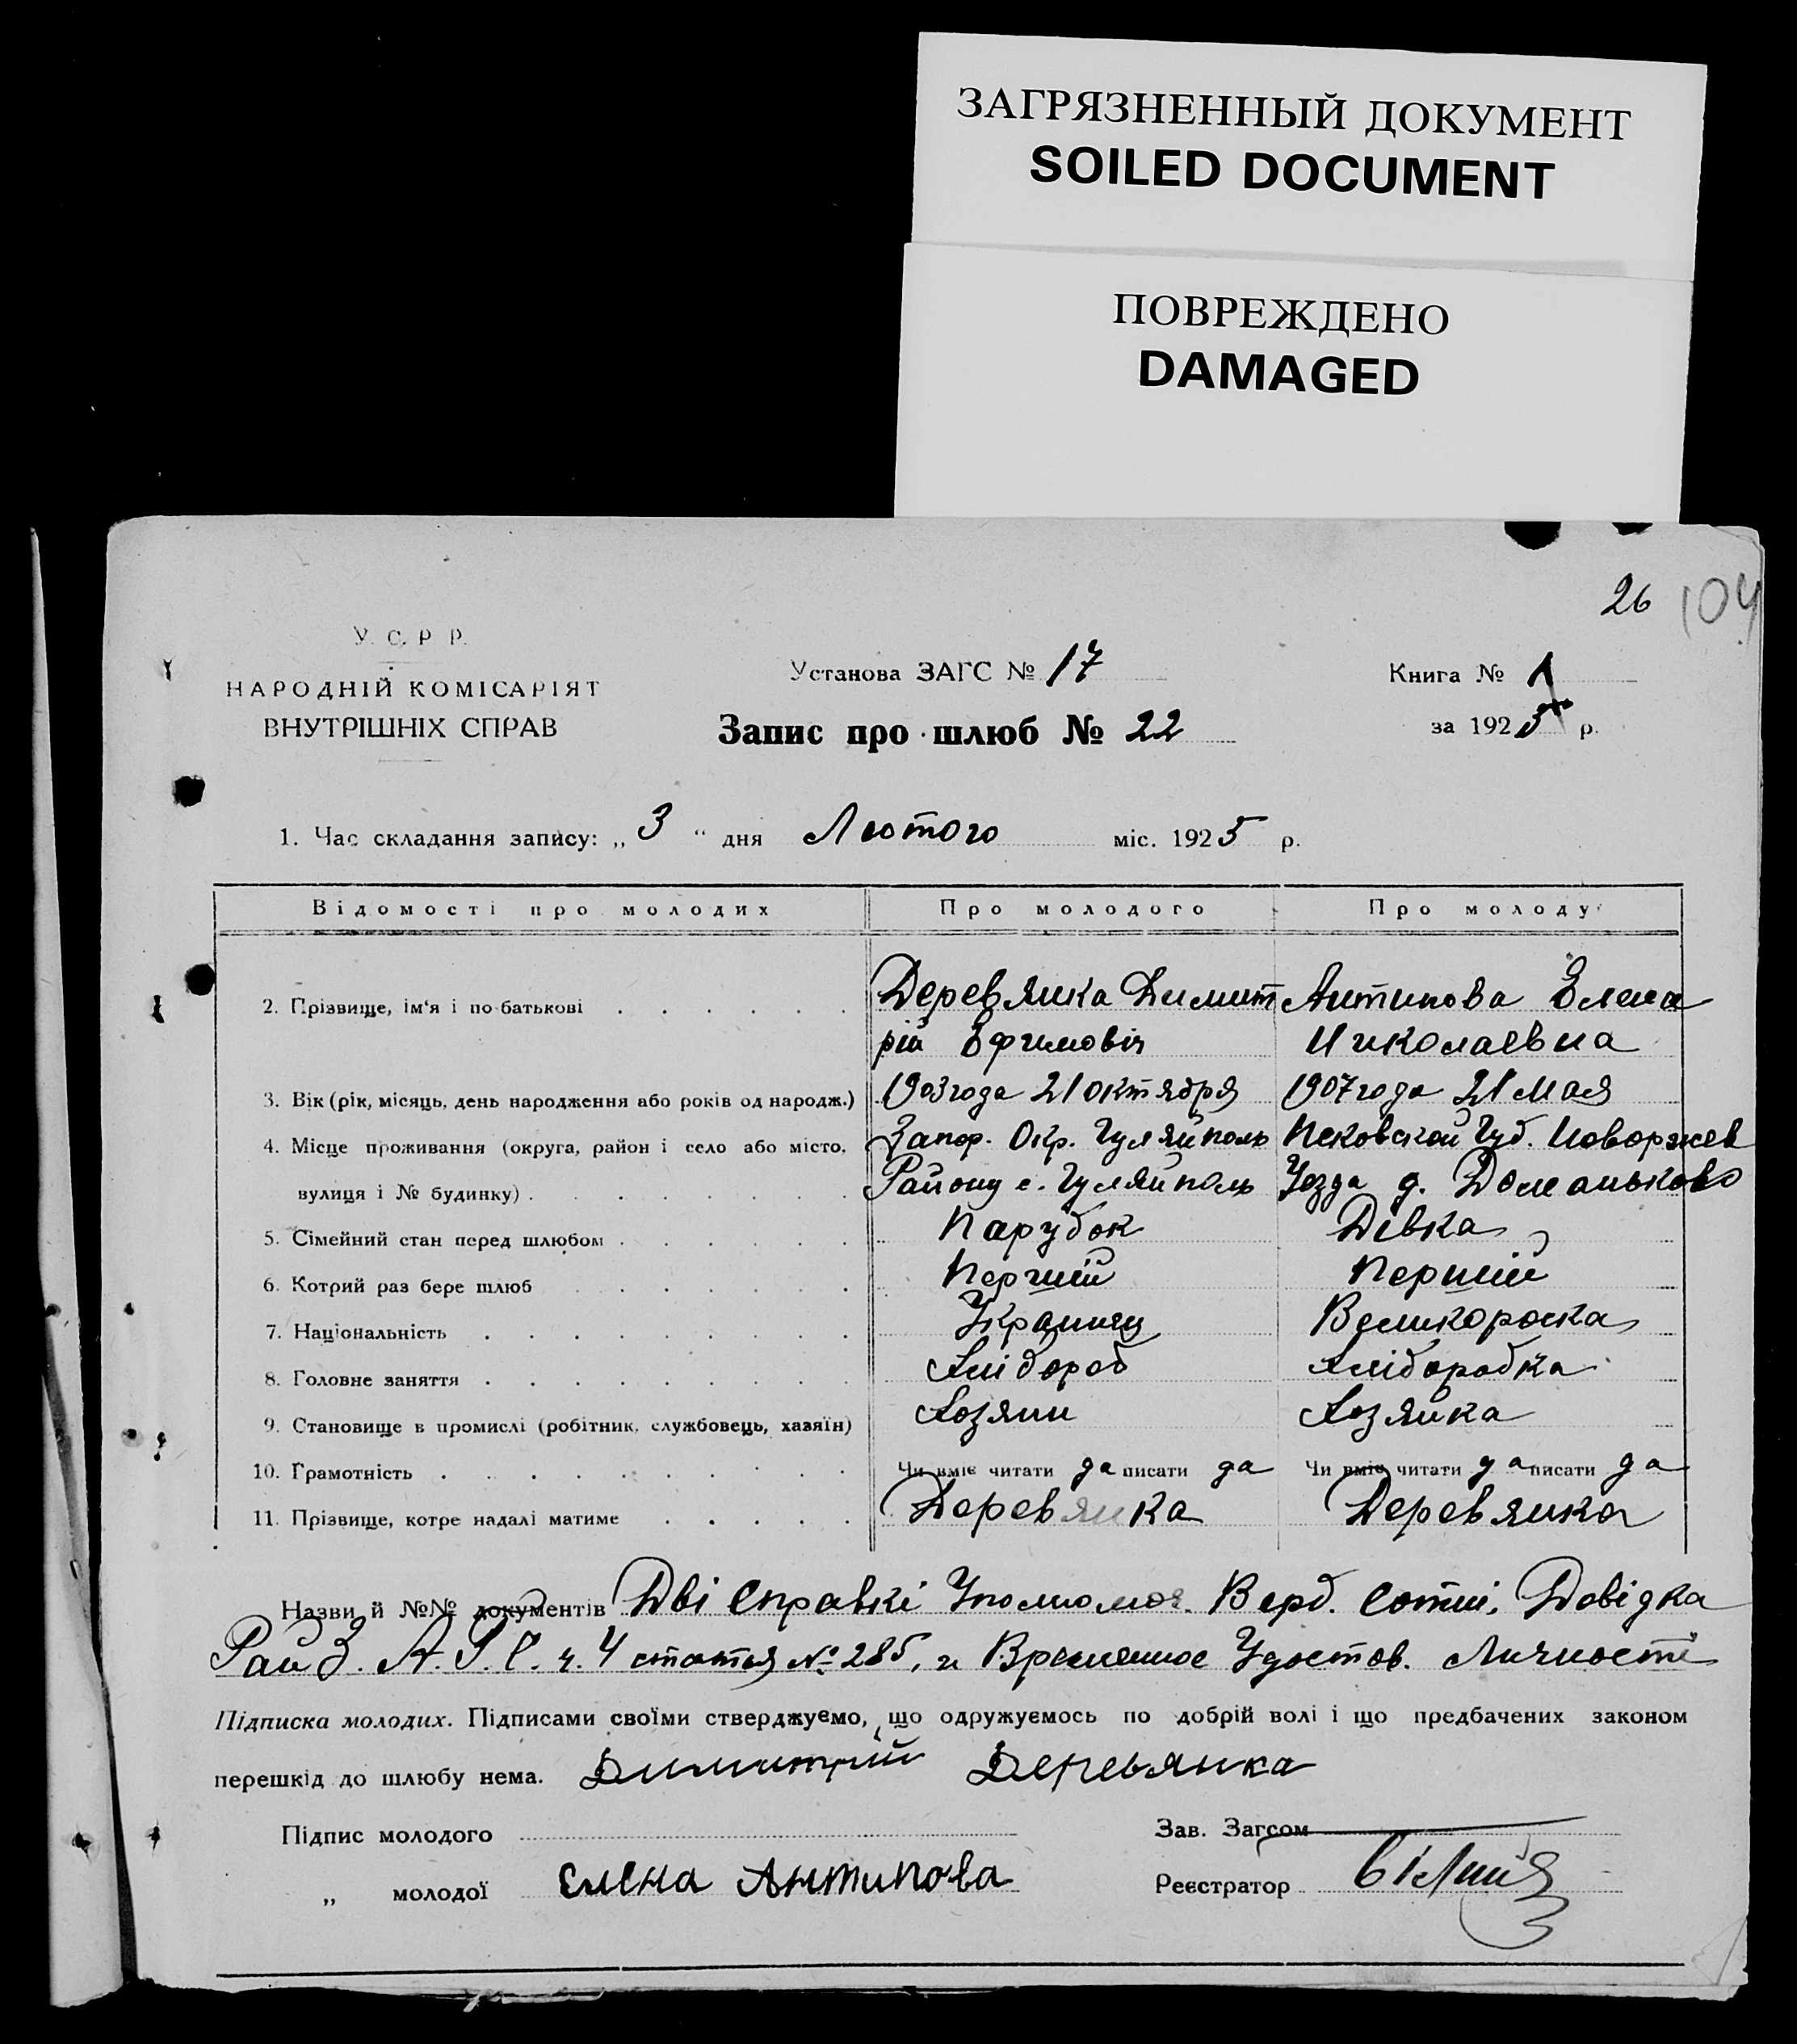 ЗАГРЯЗНЕННЫЙ ДОКУМЕНТ
SOILED DOCUMENT
ПОВРЕЖДЕНО
DAMAGED
26 104
У. С. Р. Р.
НАРОДНІЙ КОМІСАРІЯТ
ВНУТРІШНІХ СПРАВ
Установа ЗАГС № 17
Запис про шлюб № 22
Книга № 1
за 1925 р.
1. Час складання запису: „3“ дня Лютого міс. 1925 р.
Відомості про молодих Про молодого Про молоду
2. Прізвище, ім'я і по-батькові Деревянка Димит Антипова Елена
рій Ефимовіч Николаевна
3. Вік (рік, місяць, день народження або років од народж.) 1903 года 21 октября 1907 года 21 Мая
4. Місце проживання (округа, район і село або місто, Запор. Окр. Гуляйполь Псковской Губ. Новоржев
вулиця і № будинку) Району с. Гуляйполь Уезда д. Доманьково
5. Сімейний стан перед шлюбом Парубок Дівка
6. Котрий раз бере шлюб Перший Перший
7. Національність Украинец Великороска
8. Головне заняття Хлібороб Хліборобка
9. Становище в промислі (робітник, службовець, хазяїн) Хозяин Хозяйка
10. Грамотність Чи вміє читати да писати да Чи вміє читати да писати да
11. Прізвище, котре надалі матиме Деревянка Деревянка
Назви й №№ документів Дві Справкі Уполномоч. Верб. Сотні, Довідка
Рай З. А. Г. С. ч. 4 статья № 285, и Временное Удостов. Личности
Підписка молодих. Підписами своїми стверджуємо, що одружуємось по добрій волі і що предбачених законом
перешкід до шлюбу нема. Димитрий Деревянка
Підпис молодого Зав. Загсом
„ молодої Елена Антипова Реєстратор